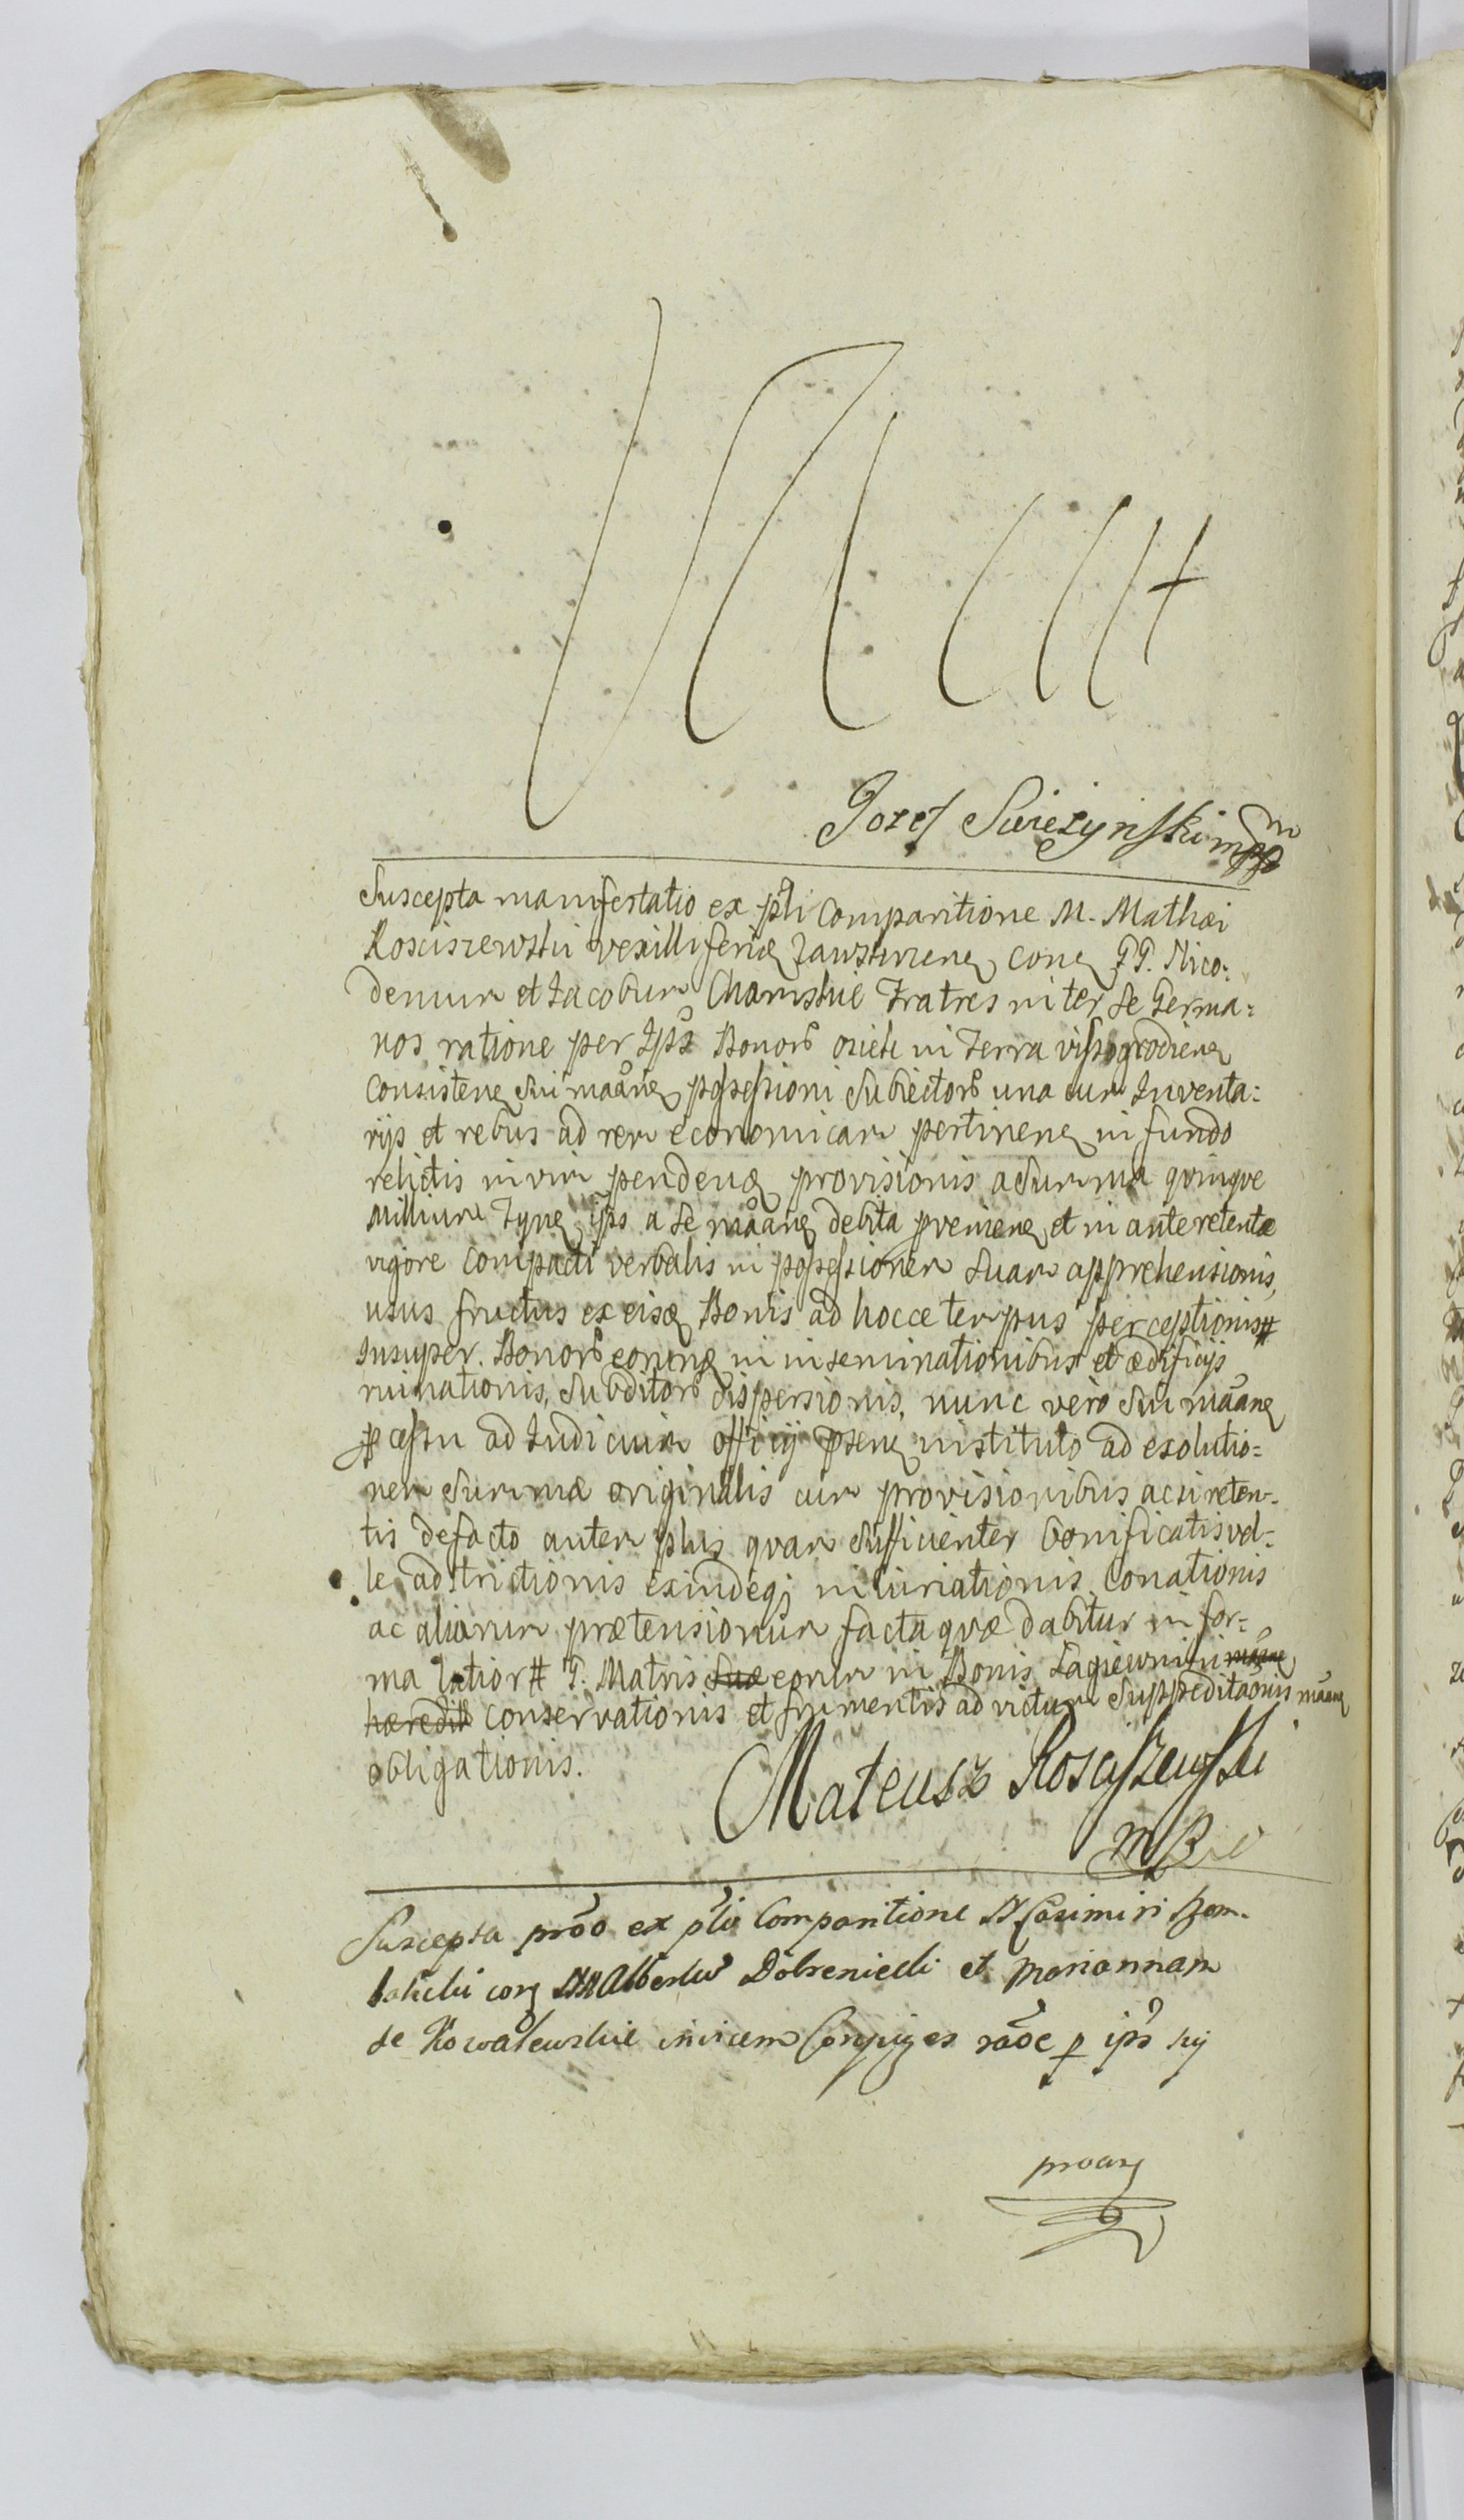 Jozef Swiezynski mpp
Suscepta manifestatio ex pti Comparitione M. Mathæi
Kosciszewski vexilliferi Zawskrzene cone GG. Nico-
demum et Jacobum Chamskie Fratres inter se Germa=
nos ratione per Ips Bonor osiek in Terra vissogrodiene
Consistene Sui maane possessioni Subiector una cum Inventa=
rijs et rebus ad rem economicam pertinene in fundo
relictis in vim pendene provisionis a Summa quinque
Millium Tyne ips a se maane debita proveniene et in ante retentæ
vigore Compacti verbalis in possessionem Suam apprehensionis,
usus fructus ex eisq Bonis ad hocce tempus perceptionis #
Insuper. Bonor eorumq in inseminationibus et ædificijs
ruinationis, Subditor dispersionis, nunc vero Sui maane
pcessu ad Judicium officij psene instituto ad exolutio=
nem Summæ originalis cum provisionibus acsi reten-
tis defacto autem plus quam Sufficienter bonificatis vel=
le adstrictionis exindeq iniuriationis Conationis
ac aliarum prætensionum facta quæ dabitur in for=
ma latior # G. Matris Suæ eorum in Bonis Lagiewniki maane
hæredit Conservationis et frumentis ad victum Suppeditaonis maane
obligationis.
Mateusz Kosciszewski
mp
Suscepta prõo ex pti Comparitione Casimiri
cone Albertum Dobreniecki et Mariannam
de Kowalewskie invicem Conjuges raoe p ips